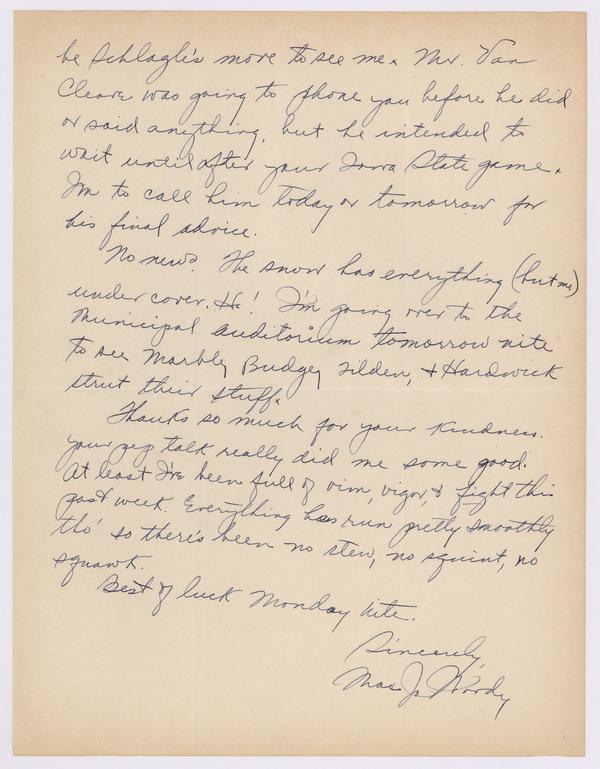 be Schlagle's move to see me. Mr. Van
Cleave was going to phone you before he did
or said anything, but he intended to
wait until after your Iowa State game.
I'm to call him today or tomorrow for
his final advice.
No news. The snow has everything (but me)
under cover. Ha! I'm going over to the
Municipal Auditorium tomorrow nite
to see Marble, Budge, Tilden, & Hardwick
strut their stuff.
Thanks so much for your kindness.
Your pep talk really did me some good.
At least I've been full of vim, vigor, & fight this
past week. Everything has run pretty smoothly
tho' so there's been no stew, no squint, no
squawk.
Best of luck Monday nite.
Sincerely,